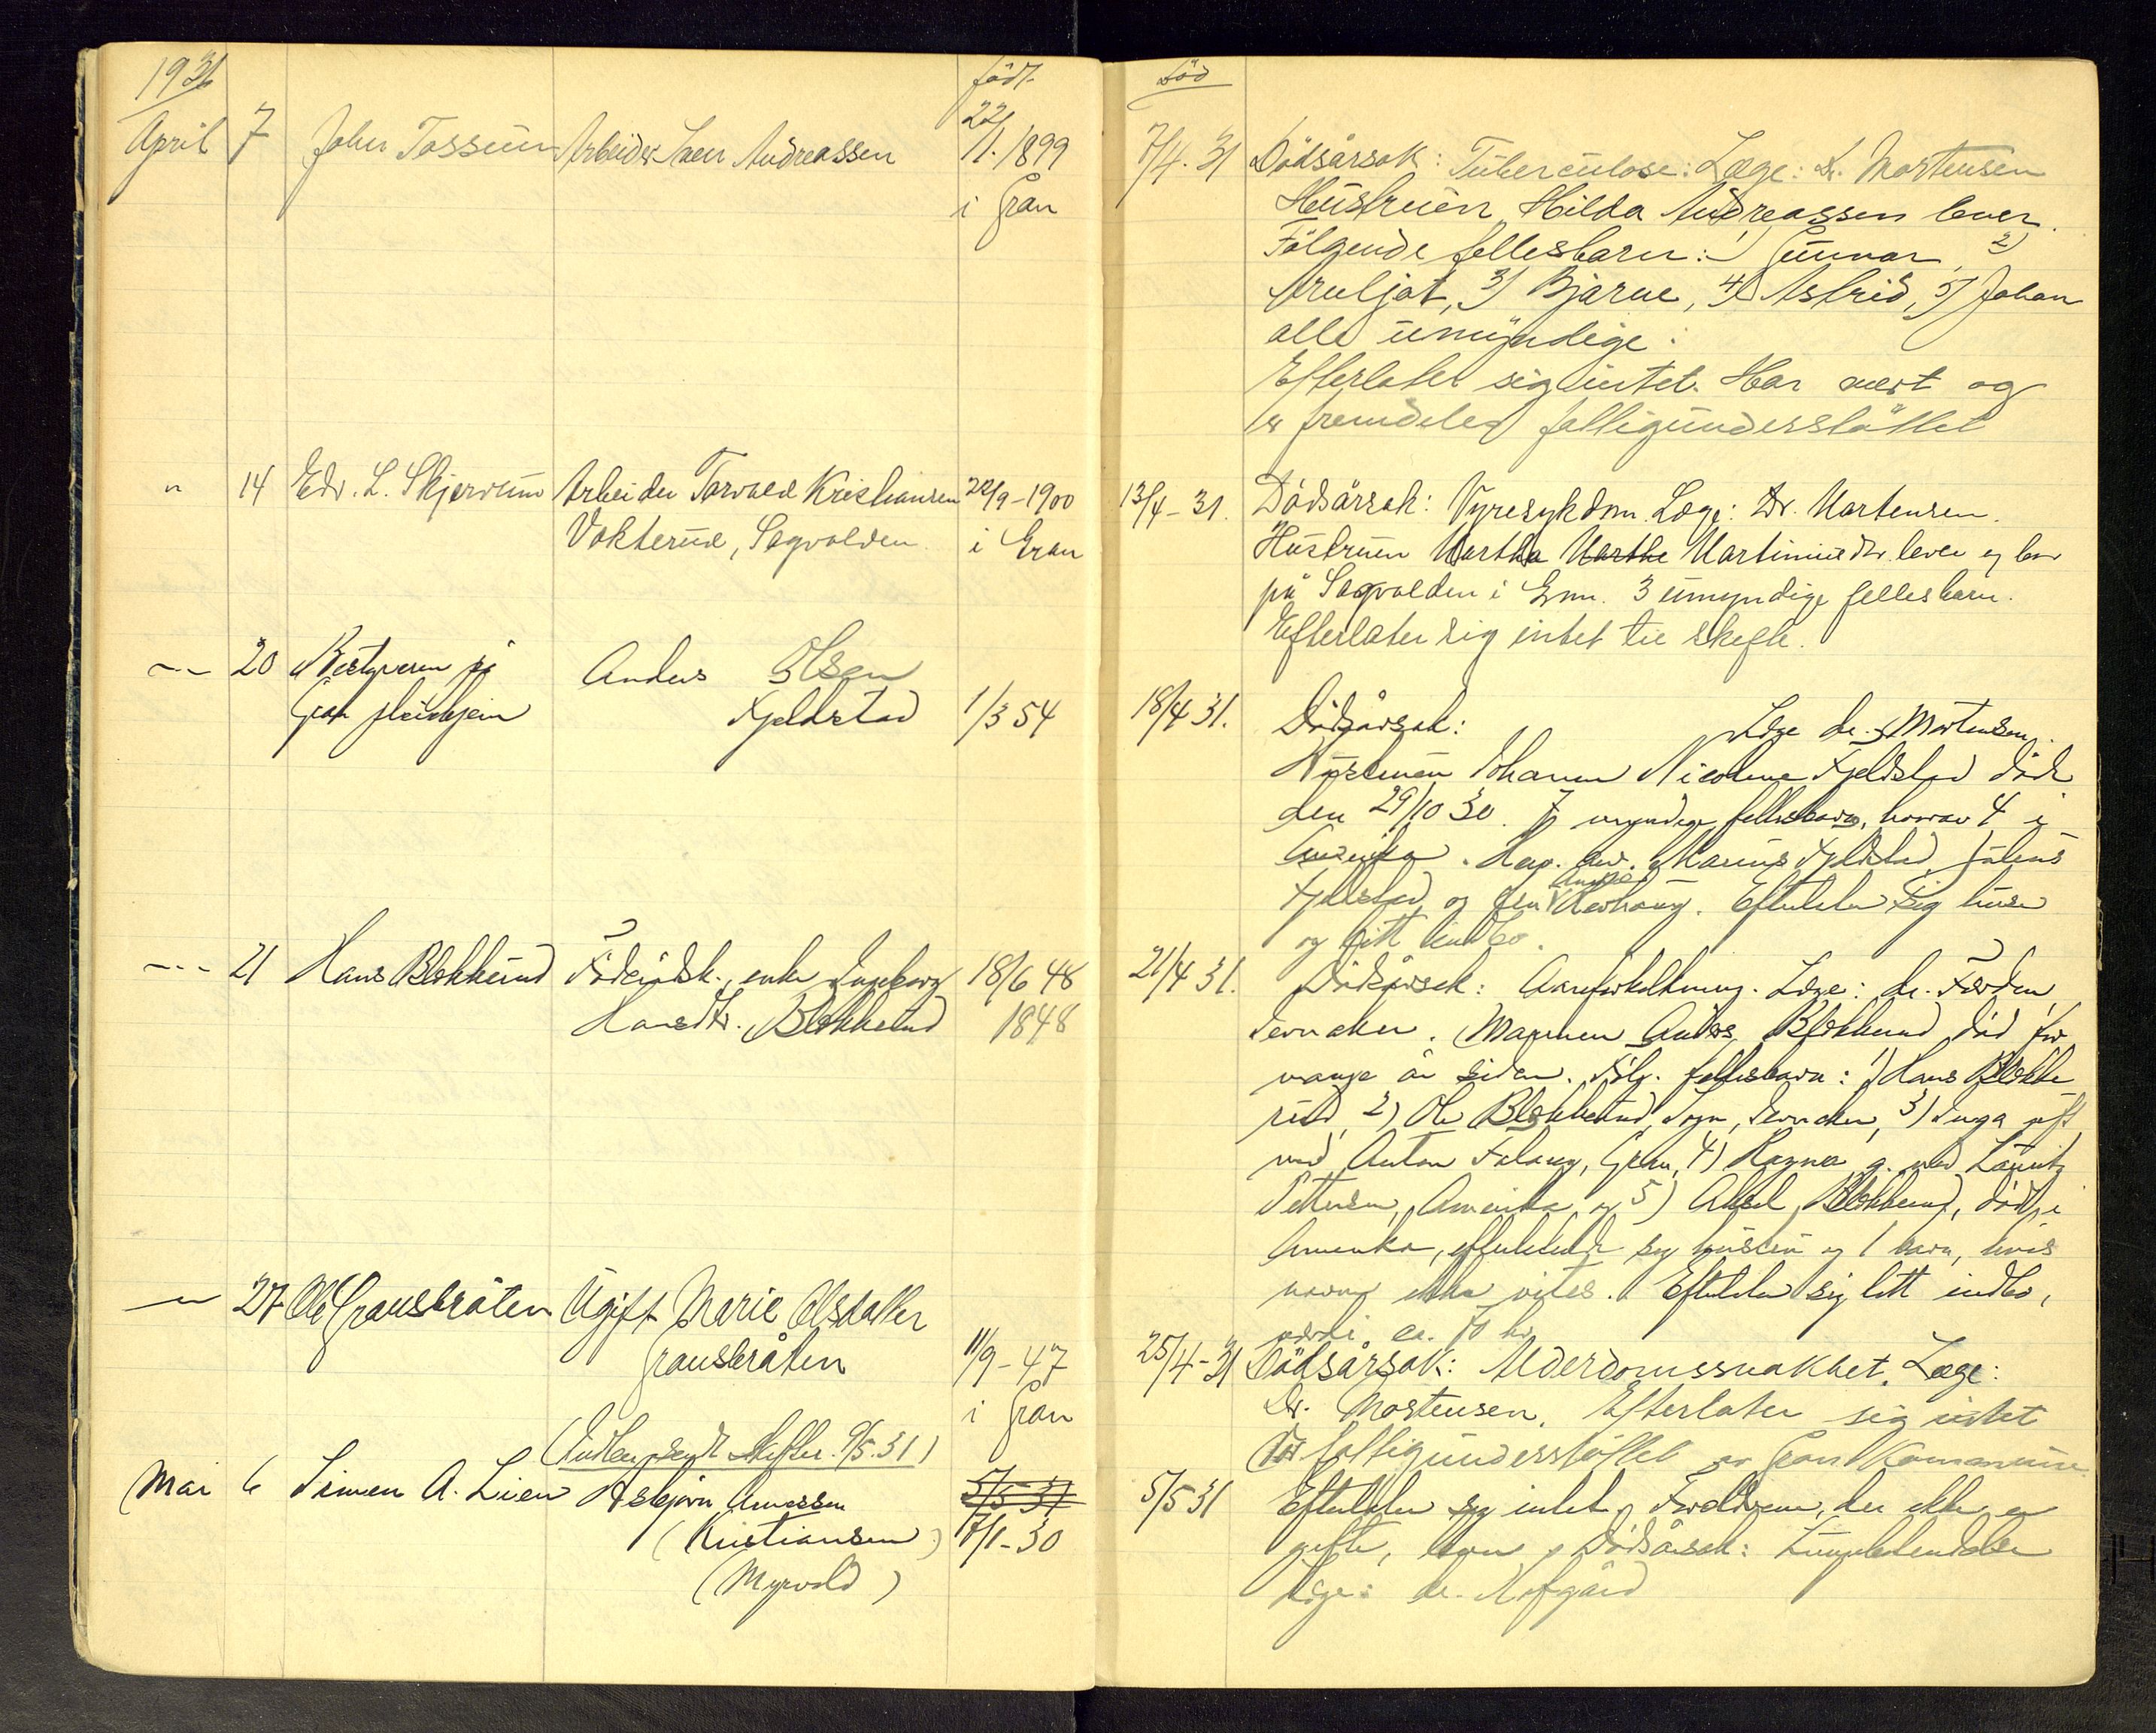 1931
født
Død
April 7 John Tossum Arbeider Iver Andreassen 22/1. 1899
i Gran
7/4. 31 Dödsårsak: Tuberculose: Læge: Dr. Mortensen
Hustruen Hilda Andreassen lever.
Fölgende fellesbarn: 1) Gunnar, 2)
Arnljot, 3) Bjarne, 4) Astrid, 5) Johan
alle umyndige.
Efterlater sig intet. Har vært og
er fremdeles fattigunderstöttet
" 14 Edv. L. Skjervum Arbeider Torvald Kristiansen 22/9-1900
Vokterud, Sagvolden i Gran
13/4-31. Dödsårsak: Nyresykdom. Læge: Dr. Martensen.
Hustruen Martha Marthe Martinusdtr. lever og bor
på Sagvolden i Gran. 3 umyndige fellesbarn.
Efterlater sig intet til skifte.
-"- 20 Bestyreren på Anders Olsen
Gran pleiehjem Fjeldstad 1/3 54
18/4 31. Dödsårsak: Læge dr. Mortensen.
Hustruen Johanne Nicoline Fjeldstad döde
den 29/10 30. 7 myndige fellesbarn, hvorav 4 i
Amerika. Marius Fjeldstad, Julius
Fjeldstad og fru Anna. Efterlater sig huse
og litt indbo.
-"- 21 Hans Blekkerud Föderådsk., enke Ingeborg 18/6 48
Hansdtr. Blekkerud 1848
21/4 31. Dödsårsak: Areforkalkning. Læge: dr. Förden,
Jevnaker. Mannen Anders Blekkerud död for
mange år siden. Fölg. fellesbarn: 1) Hans Blekke
rud, 2) Ole Blekkerud, Jevnaker, 3) Inga gift
med Anton Falang, Gran, 4) Ragna g. med Lauritz
Pettersen, Amerika og 5) Aksel Blekkerud, död i
Amerika, efterlatende sig hustru og 1 barn, hvis
navn ikke vites. Efterlater sig litt indbo,
verdi ca. 70 kr.
-"- 27 Ole Gransbråten Ugift Marie Olsdatter
Gransbråten 11/9-47
i Gran
25/4-31 Dödsårsak: Alderdomssvakhet. Læge:
Dr. Mortensen. Efterlater sig intet
Var fattigunderstöttet av Gran Kommune.
(Indber. sendt skifter. 9/5.31)
Mai 6 Simen A. Lien Asbjørn Arnessen 5/5 31
(Kristiansen) 7/1-30
(Myrvold)
5/5 31 Efterlater sig intet. Foreldrene, der ikke er
gifte, lever. Dödsårsak: Lungebetendelse
Læge: dr. Hofgård